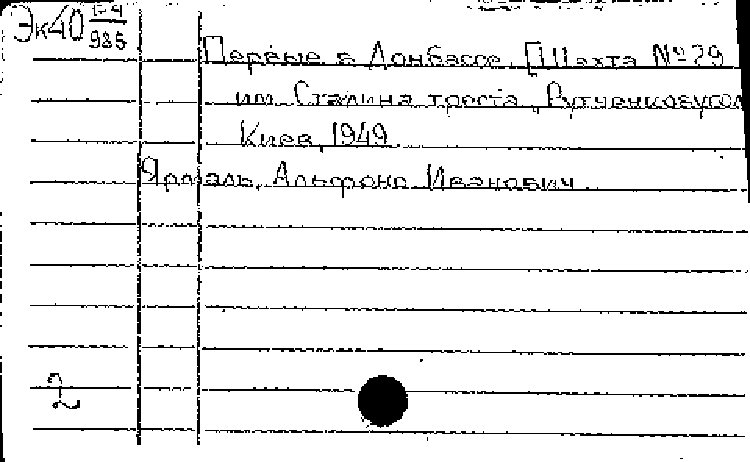 Эк40
985
Первые в Донбассе. [Шахта № 29
им. Сталина треста „Рутченковугол
Киев, 1949
Альфонс Иванович
2